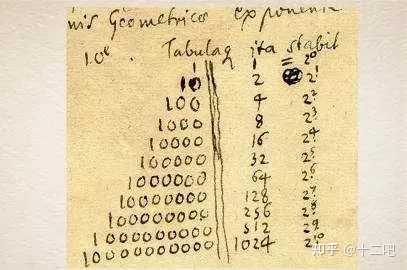 nis Geometrico exponente
Tabulaq ita stabit
1 1 = 2⁰
10 2 2¹
100 4 2²
1000 8 2³
10000 16 2⁴
100000 32 2⁵
1000000 64 2⁶
10000000 128 2⁷
100000000 256 2⁸
1000000000 512 2⁹
10000000000 1024 2¹⁰
知乎 @十二吧